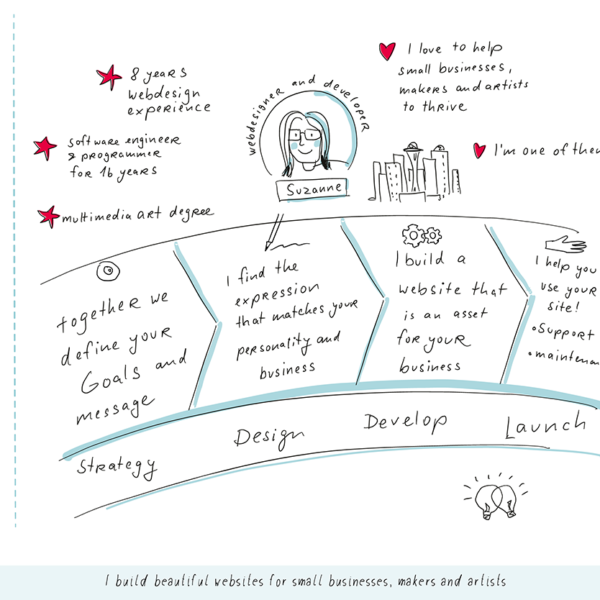 8 years
webdesign
experience
software engineer
& programmer
for 16 years
multimedia art degree
webdesigner and developer
Suzanne
I love to help
small businesses,
makers and artists
to thrive
I'm one of them
together we
define your
Goals and
message
I find the
expression
that matches your
personality and
business
I build a
website that
is an asset
for your
business
I help you
use your
site!
•Support
•maintenan
Strategy
Design
Develop
Launch
I build beautiful websites for small businesses, makers and artists